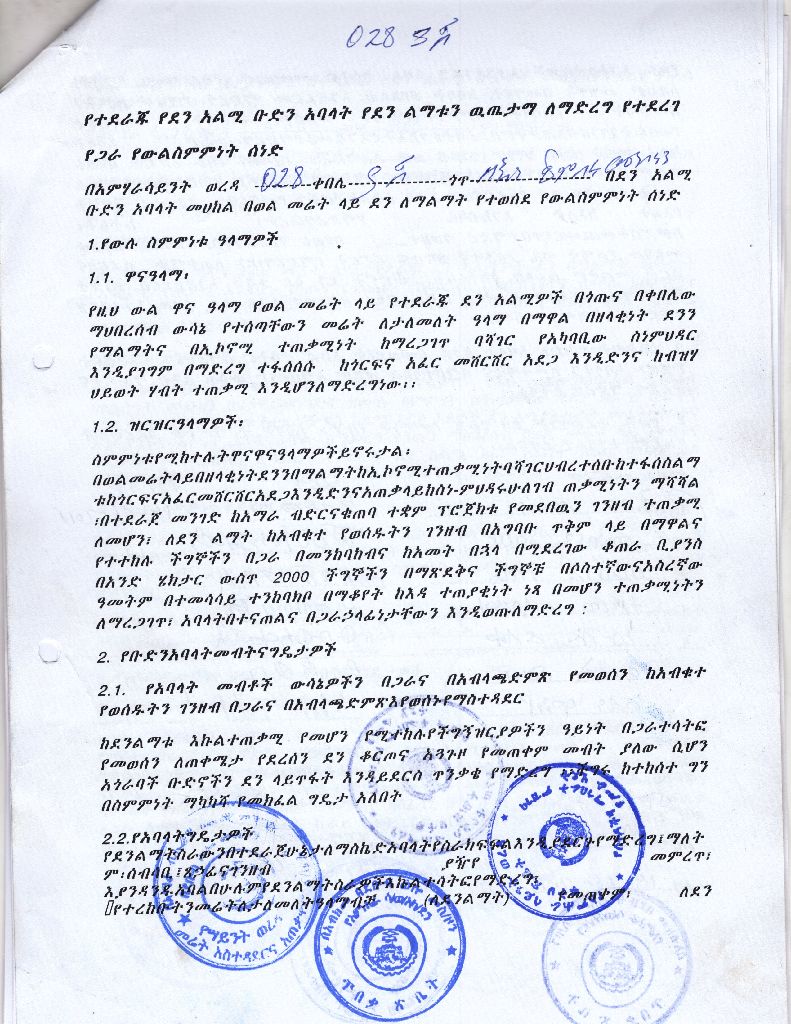 028 ቓ ፳
የተደራጁ የደን አልሚ ቡድን አባላት የደን ልማቱን ዉጤታማ ለማድረግ የተደረገ
የጋራ የውልስምምነት ሰነድ
በአምሃራሳይንት ወረዳ 028 ቀበሌ ጎጥ በደን አልሚ
ቡድን አባላት መሀከል በወል መሬት ላይ ደን ለማልማት የተወሰደ የውልስምምነት ሰነድ
1.የውሉ ስምምነቱ ዓላማዎች
1.1. ዋናዓላማ፡
የዚህ ውል ዋና ዓላማ የወል መሬት ላይ የተደራጁ ደን አልሚዎች በጎጡና በቀበሌው
ማህበረሰብ ውሳኔ የተሰጣቸውን መሬት ለታለመለት ዓላማ በማዋል በዘላቂነት ደንን
የማልማትና በኢኮኖሚ ተጠቃሚነት ከማረጋገጥ ባሻገር የአካባቢው ስነምህዳር
እንዲያገግም በማድረግ ተፋሰሱ ከጎርፍና አፈር መሸርሸር አደጋ እንዲድንና ከብዝሃ
ህይወት ሃብት ተጠቃሚ እንዲሆንለማድረግነው፡፡
1.2. ዝርዝርዓላማዎች፡
ስምምነቱየሚከተሉትዋናዋናዓላማዎችይኖሩታል፡
በወልመሬትላይበዘላቂነትደንንበማልማትከኢኮኖሚተጠቃሚነትባሻገርሀብረተሰቡከተፋሰስልማ
ቱከጎርፍናአፈርመሸርሸርአደጋእንዲድንናአጠቃላይከስነ-ምህዳሩሁለገብ ጠቃሚነትን ማሻሻል
፡በተደራጀ መንገድ ከአማራ ብድርናቁጠባ ተቋም ፕሮጀክቱ የመደበዉን ገንዘብ ተጠቃሚ
ለመሆን፣ ለደን ልማት ከአብቁተ የወሰዱትን ገንዘብ በአግባቡ ጥቅም ላይ በማዋልና
የተተከሉ ችግኞችን በጋራ በመንከባከብና ከአመት በኋላ በሚደረገው ቆጠራ ቢያንስ
በአንድ ሄክታር ውስጥ 2000 ችግኞችን በማጽደቅና ችግኞቹ በሶስተኛውናአስረኛው
ዓመትም በተመሳሳይ ተንከባክቦ በማቆየት ከእዳ ተጠያቂነት ነጻ በመሆን ተጠቃሚነትን
ለማረጋገጥ፣ አባላትበተናጠልና በጋራኃላፊነታቸውን እንዲወጡለማድረግ ፡
2. የቡድንአባላትመብትናግዴታዎች
2.1. የአባላት መብቶች ውሳኔዎችን በጋራና በአብላጫድምጽ የመወሰን ከአብቁተ
የወሰዱትን ገንዘብ በጋራና በአብላጫድምጽእየወሰኑየማስተዳደር
ከደንልማቱ እኩልተጠቃሚ የመሆን የሚተከሉየችግኝዝርያዎችን ዓይነት በጋራተሳትፎ
የመወሰን ለጠቀሜታ የደረሰን ደን ቆርጦና አጓጉዞ የመጠቀም መብት ያለው ሲሆን
አጎራባች ቡድኖችን ደን ላይጥፋት እንዳይደርስ ጥንቃቄ የማድረግ ችግሩ ከተከሰተ ግን
በስምምነት ማካካሻ የመክፈል ግዴታ አለበት
2.2.የአባላትግዴታዎች
የደንልማትስራውንበተደራጀሁኔታለማስኬድአባላትየስራክፍፍልእንዲያደርጉየማድረግ፣ማለት
ም፡ሰብሳቢ፣ጸኃፊናገንዘብ ያዥየ መምረጥ፣
እያንዳንዱአባልበሁሉምየደንልማትስራዎችእኩልተሳትፎየማድረግ፣
የተረከቡትንመሬትለታለመለትዓላማብቻ (ለደንልማት) የመጠቀም፣ ለደን
የሣይንት ወረዳ
መሬት አስተዳደርና አጠቃቀም
ጥበቃ ጽ ቤት